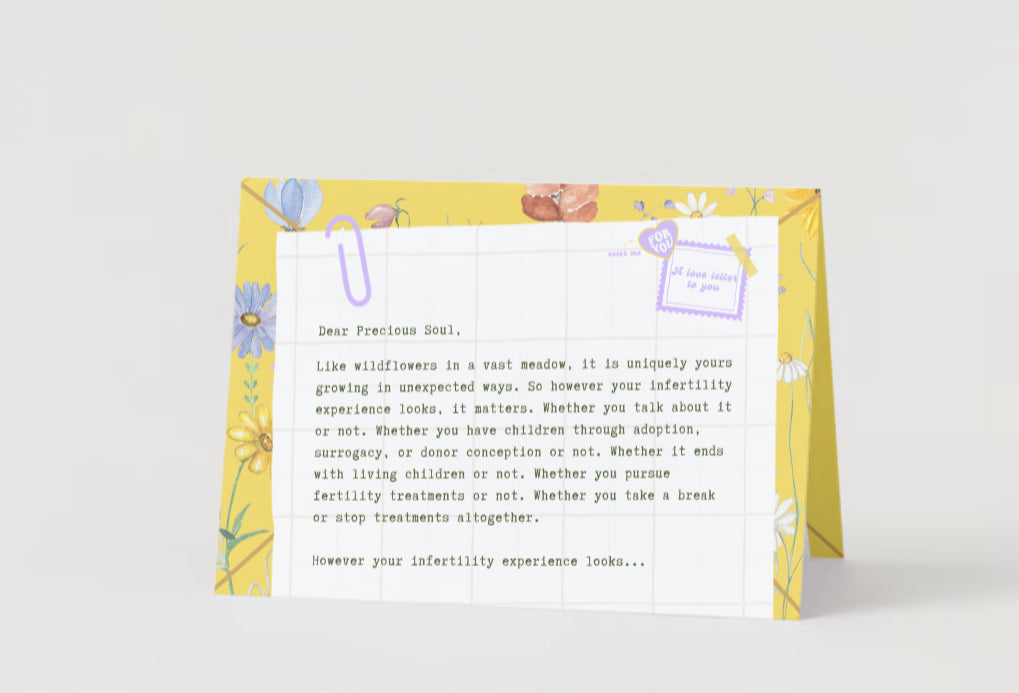 FOR
YOU
color me
A love letter
to you
Dear Precious Soul,
Like wildflowers in a vast meadow, it is uniquely yours
growing in unexpected ways. So however your infertility
experience looks, it matters. Whether you talk about it
or not. Whether you have children through adoption,
surrogacy, or donor conception or not. Whether it ends
with living children or not. Whether you pursue
fertility treatments or not. Whether you take a break
or stop treatments altogether.
However your infertility experience looks...